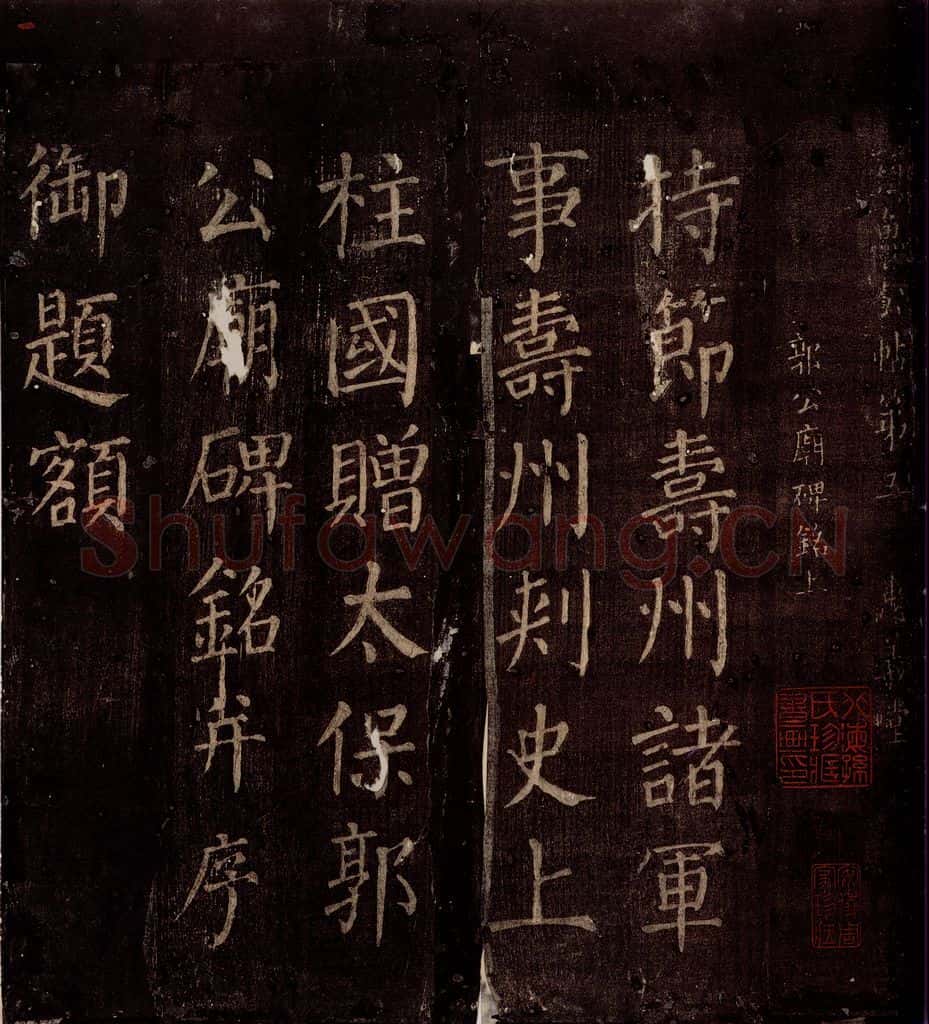 郭公廟碑銘上
持節壽州諸軍
事壽州刾史上
柱國贈太保郭
公廟碑銘并序
御題額
Shufawang.CN